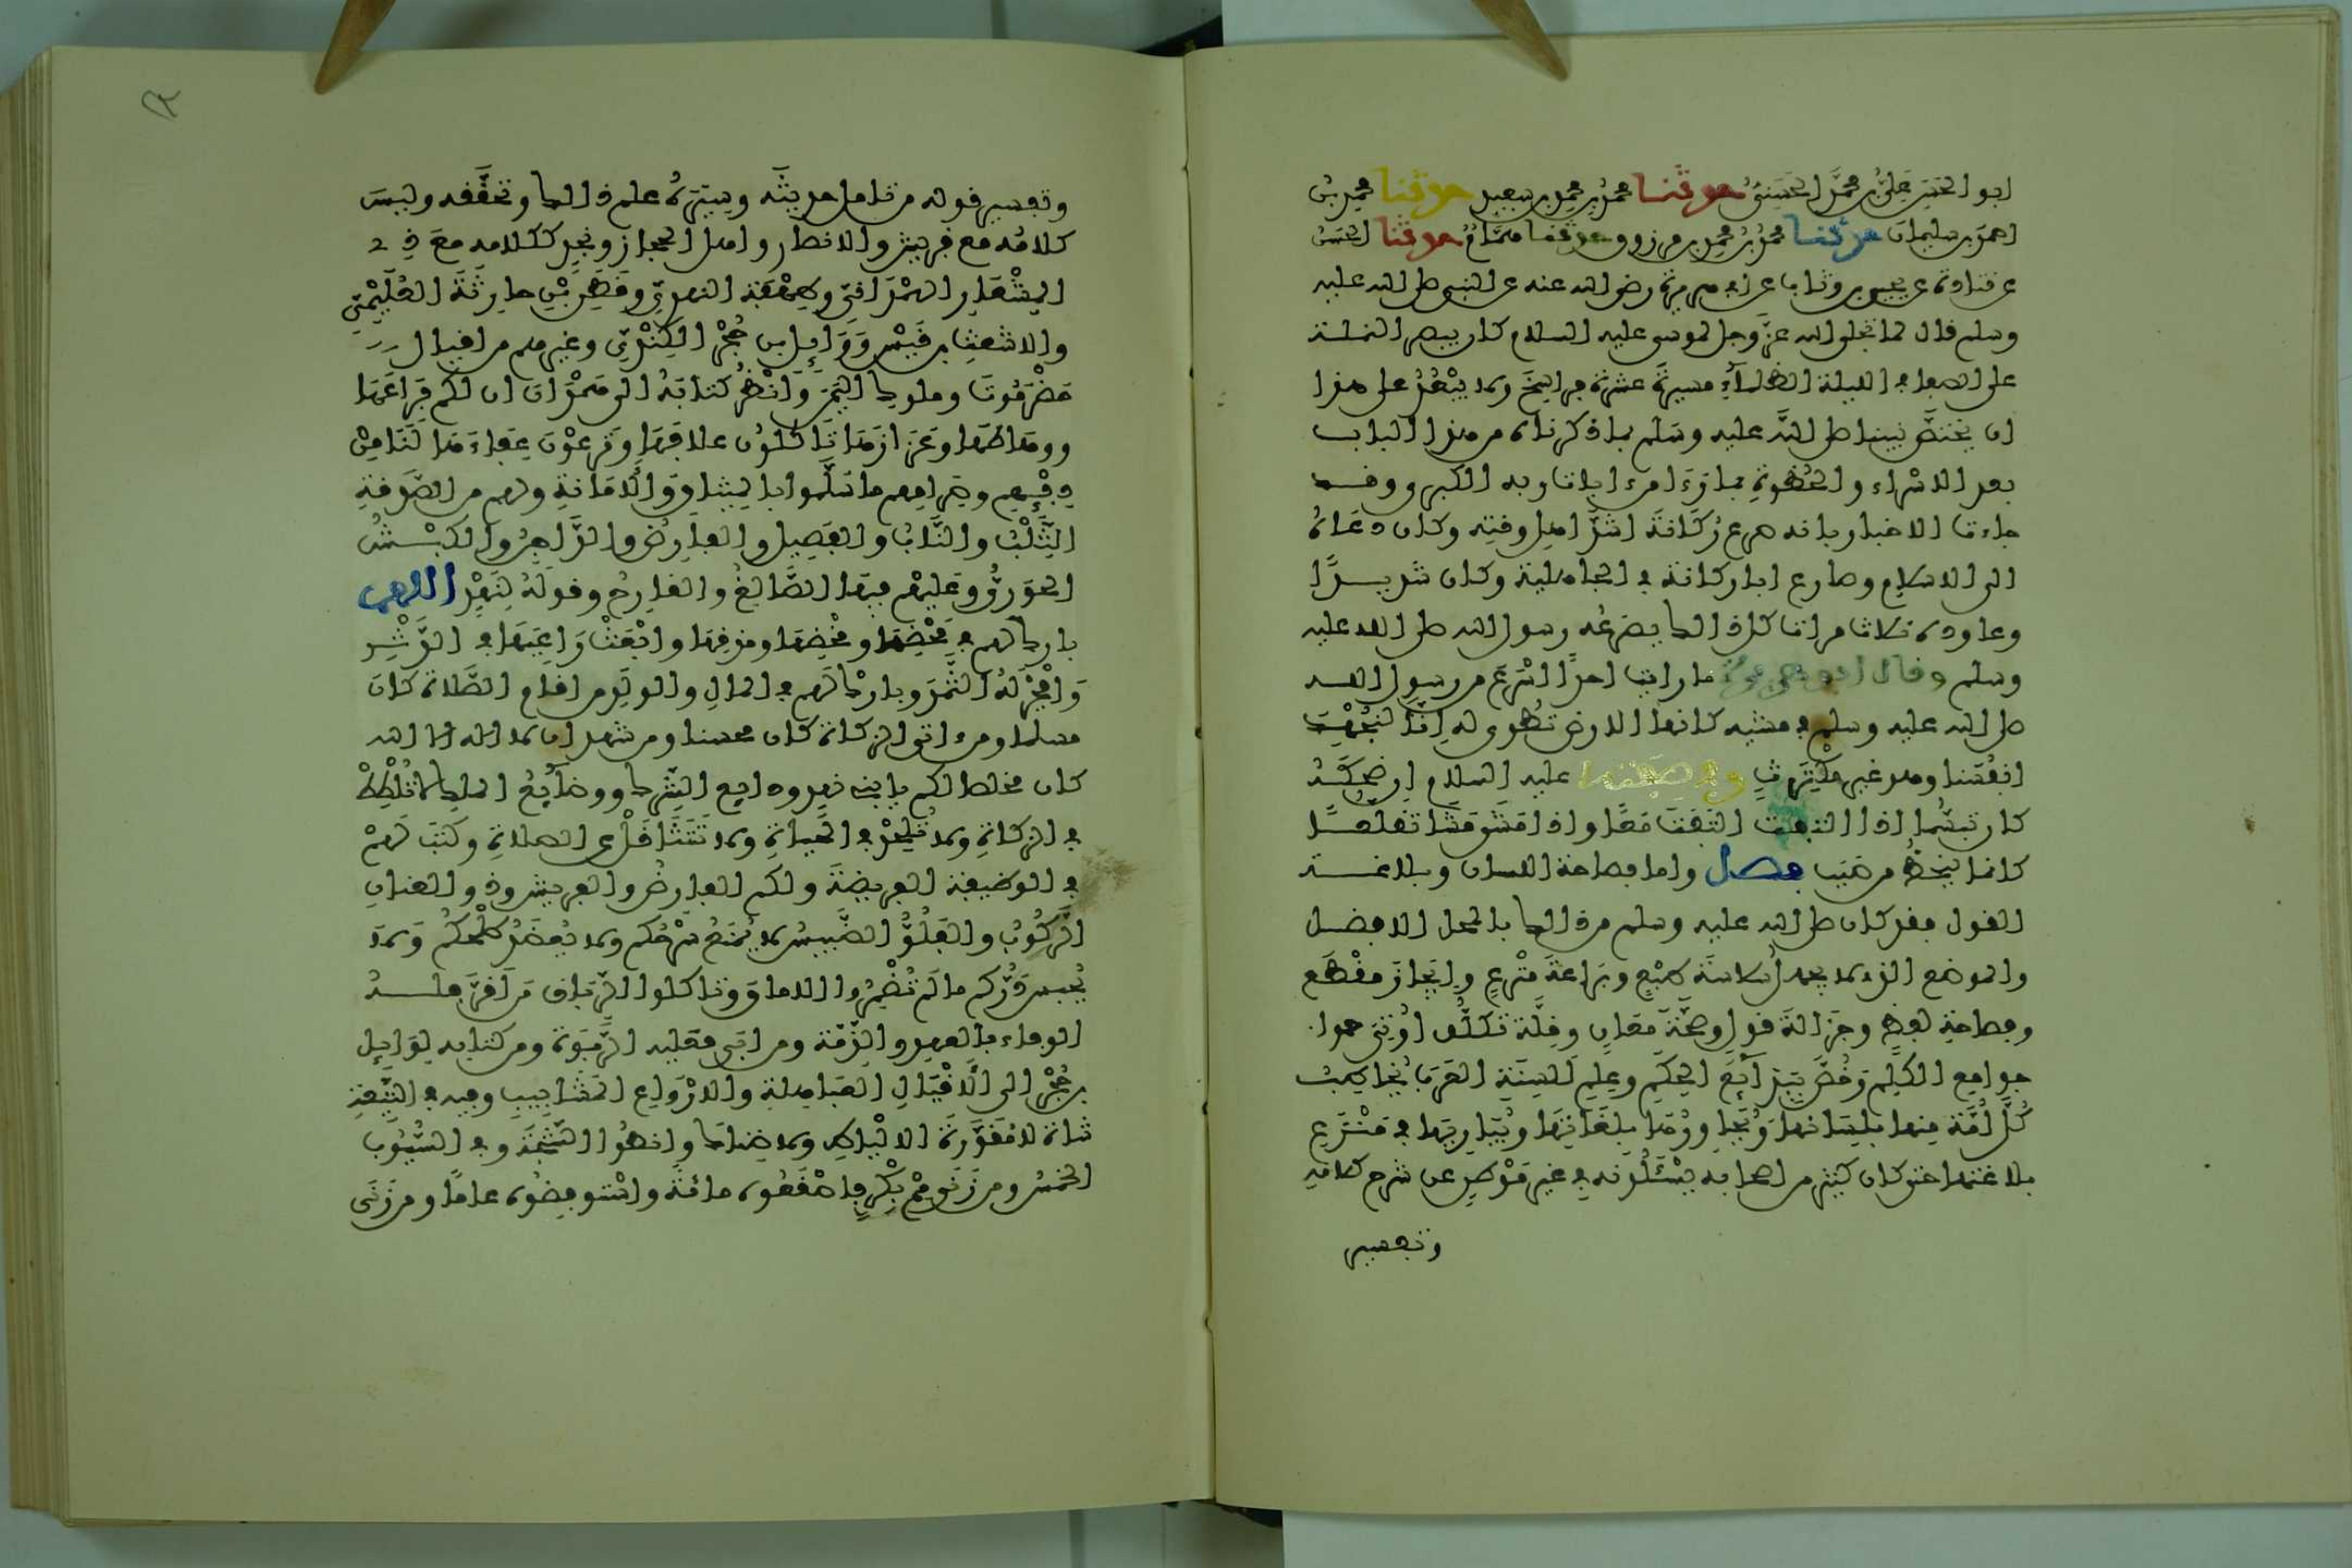 ابو الحسن علي بن محمد الحسني حدثنا محمد بن محمد بن سعيد حدثنا محمد بن
احمد بن سليمان حدثنا محمد بن محمد بن مرزوق حدثنا همام حدثنا الحسن
عن قتادة عن يحيى بن وثاب عن ابي هريرة رضي الله عنه عن النبي صلى الله عليه
وسلم قال لما تجلى الله عز وجل لموسى عليه السلام كان يبصر النملة
على الصفا في الليلة الظلماء مسيرة عشرة فراسخ ولا يبعد على هذا
ان يختص نبينا صلى الله عليه وسلم بما ذكرناه من هذا الباب
بعد الاسراء والحظوة بما رءا من ءايات ربه الكبرى وقد
جاءت الاخبار بانه صرع ركانة اشد اهل وقته وكان دعاه
الى الاسلام وصارع ابا ركانة في الجاهلية وكان شديدا
وعاوده ثلاث مرات كل ذالك يصرعه رسول الله صلى الله عليه
وسلم وقال ابو هريرة ما رايت احدا اسرع من رسول الله
صلى الله عليه وسلم في مشيه كانما الارض تطوى له انا لنجهد
انفسنا وهو غير مكترث وفي صفته عليه السلام ان ضحكه
كان تبسما اذا التفت التفت معا واذا مشى مشى تقلعا
كانما ينحط من صبب فصل واما فصاحة اللسان وبلاغة
القول فقد كان صلى الله عليه وسلم من ذالك بالمحل الافضل
والموضع الذي لا يجهل سلاسة طبع وبراعة منزع وايجاز مقطع
وفصاحة لفظ وجزالة قول وصحة معان وقلة تكلف اوتي جوا.
جوامع الكلم وخص ببدائع الحكم وعلم السنة العرب يخاطب
كل امة منها بلسانها ويحاورها بلغاتها ويباريها في منزع
بلاغتها حتى كان كثير من اصحابه يسئلونه في غير موطن عن شرح كلامه
وتفسير
وتفسير قوله من تامل حديثه وسيره علم ذالك وتحققه وليس
كلامه مع قريش والانصار واهل الحجاز ونجد ككلامه مع ذي
المشعار الهمداني وطهفة النهدي وقطن بن حارثة العليمي
والاشعث بن قيس ووائل بن حجر الكندي وغيرهم من اقيال
حضرموت وملوك اليمن وانظر كتابه الى همدان ان لكم فراعها
ووهاطها وعزازها تاكلون علافها وترعون عفاءها لنا من
دفئهم وصرامهم ما سلموا بالميثاق والامانة ولهم من الصدقة
الثلب والناب والفصيل والفارض والداجن والكبش
الحوري وعليهم فيها الصالغ والقارح وقوله لنهد اللهم
بارك لهم في محضها ومخضها ومذقها وابعث راعيها في الدثر
وافجر له الثمد وبارك لهم في المال والولد من اقام الصلاة كان
مسلما ومن ءاتى الزكاة كان محسنا ومن شهد ان لا اله الا الله
كان مخلصا لكم يا بني نهد ودائع الشرك ووضائع الملك لا تلطط
في الزكاة ولا تلحد في الحياة ولا تتثاقل عن الصلاة وكتب لهم
في الوظيفة الفريضة ولكم الفارض والفريش وذو العنان
الركوب والفلو الضبيس لا يمنع سرحكم ولا يعضد طلحكم ولا
يحبس دركم ما لم تضمروا الاماق وتاكلوا الرباق من اقر فله
الوفاء بالعهد والذمة ومن ابى فعليه الربوة ومن كتابه لوائل
بن حجر الى الاقيال العباهلة والارواع المشابيب وفيه في التيعة
شاة لا مقورة الالياط ولا ضناك وانطوا الثبجة وفي السيوب
الخمس ومن زنى مم بكر فاصقعوه مائة واستوفضوه عاما ومن زنى